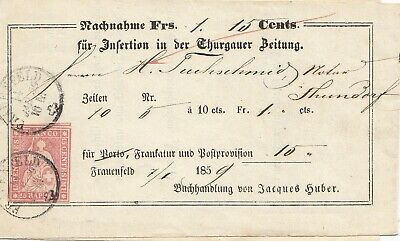 Nachnahme Frs. 1. 15 Cents.
für Insertion in der Thurgauer Zeitung.
Herrn H. Tuchschmid, Notar
Thundorf
Zeilen Nr. à 10 cts. Fr. 1. „ cts.
10 5
für Porto, Frankatur und Postprovision 15 „
Frauenfeld 7/1 1859
Buchhandlung von Jacques Huber.
FRANCO
15 RAP.